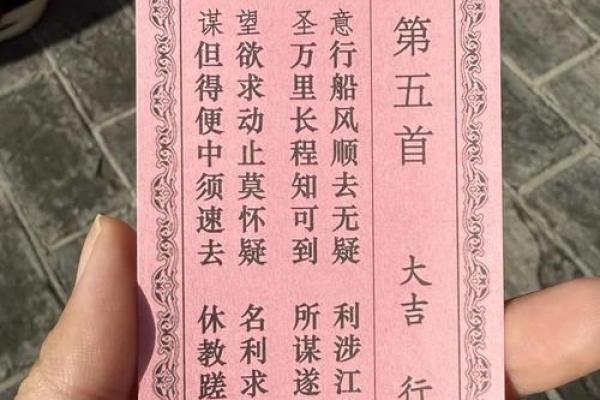 第五首 大吉 行
意行船风顺去无疑 利涉江
圣万里长程知可到 所谋遂
望欲求动止莫怀疑 名利求
谋但得便中须速去 休教蹉